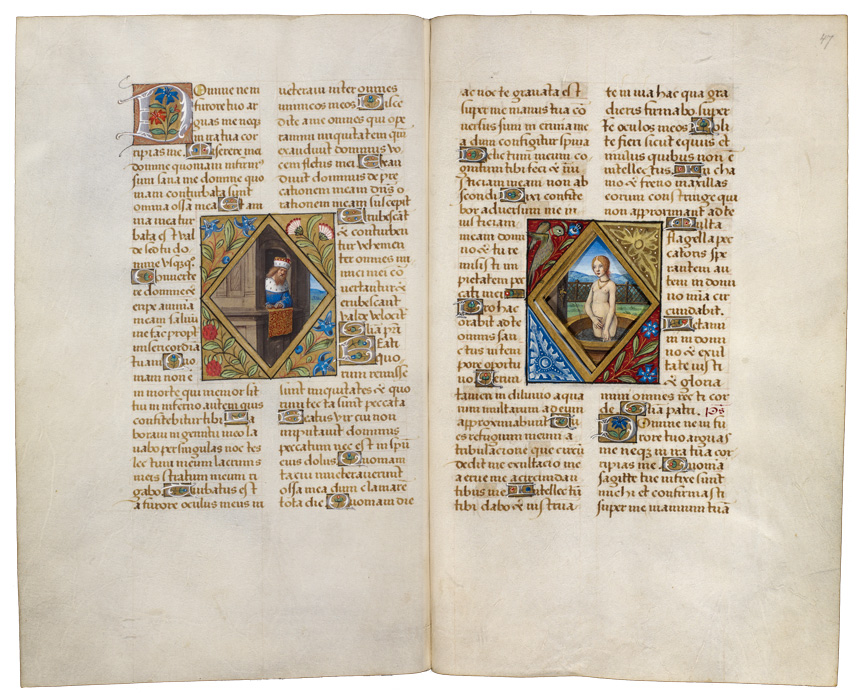 Domine ne in
furore tuo ar
guas me neqȝ
in ira tua cor
ripias me. Miserere mei
domine quoniam infirmꝰ
sum sana me domine quo
niam conturbata sunt
omnia ossa mea Et ani
ma mea tur
bata est val
de sed tu do
mine usqȝqȝ
Convuerte
re domine et
eripe animā
meam salvū
me fac propt
misericordiā
tuam Quo
niam non e
in morte qui memor sit
tui in inferno autem quis
confitebitur tibi La
boravi in gemitu meo la
vabo per singulas noctes
lectum meum lacrimis
meis stratum meum ri
gabo Turbatus est
a furore oculus meus in
veteravi inter omnes
inimicos meos Disce
dite a me omnes qui ope
ramini iniquitatem qm̄
exaudivit dominus vo
cem fletus mei Exau
divit dominus depre
cationem meam dn̄s o
rationem meam suscepit
Erubescāt
et conturben
tur vehemen
ter omnes ini
mici mei cō
vertantur et
erubescant
valde velocit̄
Gloria pr̄i
Beati
quo
rum remisse
sunt iniquitates et quo
rum tecta sunt peccata
Beatus vir cui non
imputavit dominus
peccatum nec est in spū
eius dolus Quoniam
tacui inveteraverunt
ossa mea dum clamarē
tota die Quoniam die
ac nocte gravata est
super me manus tua cō
versus sum in erumna me
a dum configitur spina
Delictum meum co
gnitum tibi feci et iniu
sticiam meam non ab
scondi Dixi confite
bor adversum me in
iusticiam
meam domi
no et tu re
misisti im
pietatem pec
cati mei
Pro hac
orabit ad te
omnis san
ctus in tem
pore oportu
no Verum
tamen in diluvio aqua
rum multarum ad eum
approximabunt Tu
es refugium meum a
tribulacione que circū
dedit me exultacio me
a erue me a circundan
tibus me Intellectū
tibi dabo et instrua
te in via hac qua gra
dieris firmabo super
te oculos meos Noli
te fieri sicut equus et
mulus quibus non e
intellectus In cha
mo et freno maxillas
eorum constringe qui
non approximant ad te
Multa
flagella pec
catoris spe
rantem au
tem in domi
no mīa cir
cundabit
Letami
ni in domi
no et exul
tate iusti
et gloria
mini omnes recti cor
de Gloria patri. ps
Domine ne in fu
rore tuo arguas
me neqȝ in ira tua cor
ripias me Quoniā
sagitte tue infixe sunt
michi et confirmasti
super me manum tuā
47